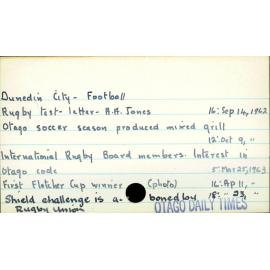 Dunedin City - Football
Rugby test - letter - A.H. Jones 16: Sep 14, 1962
Otago soccer season produced mixed grill
12: Oct 9, "
International Rugby Board members. Interest in
Otago code 5: Mar 25, 1963
First Fletcher Cup winner (photo) 16: Ap 11, -
Shield challenge is a boned by 18: " 23, "
Rugby Union
OTAGO DAILY TIMES